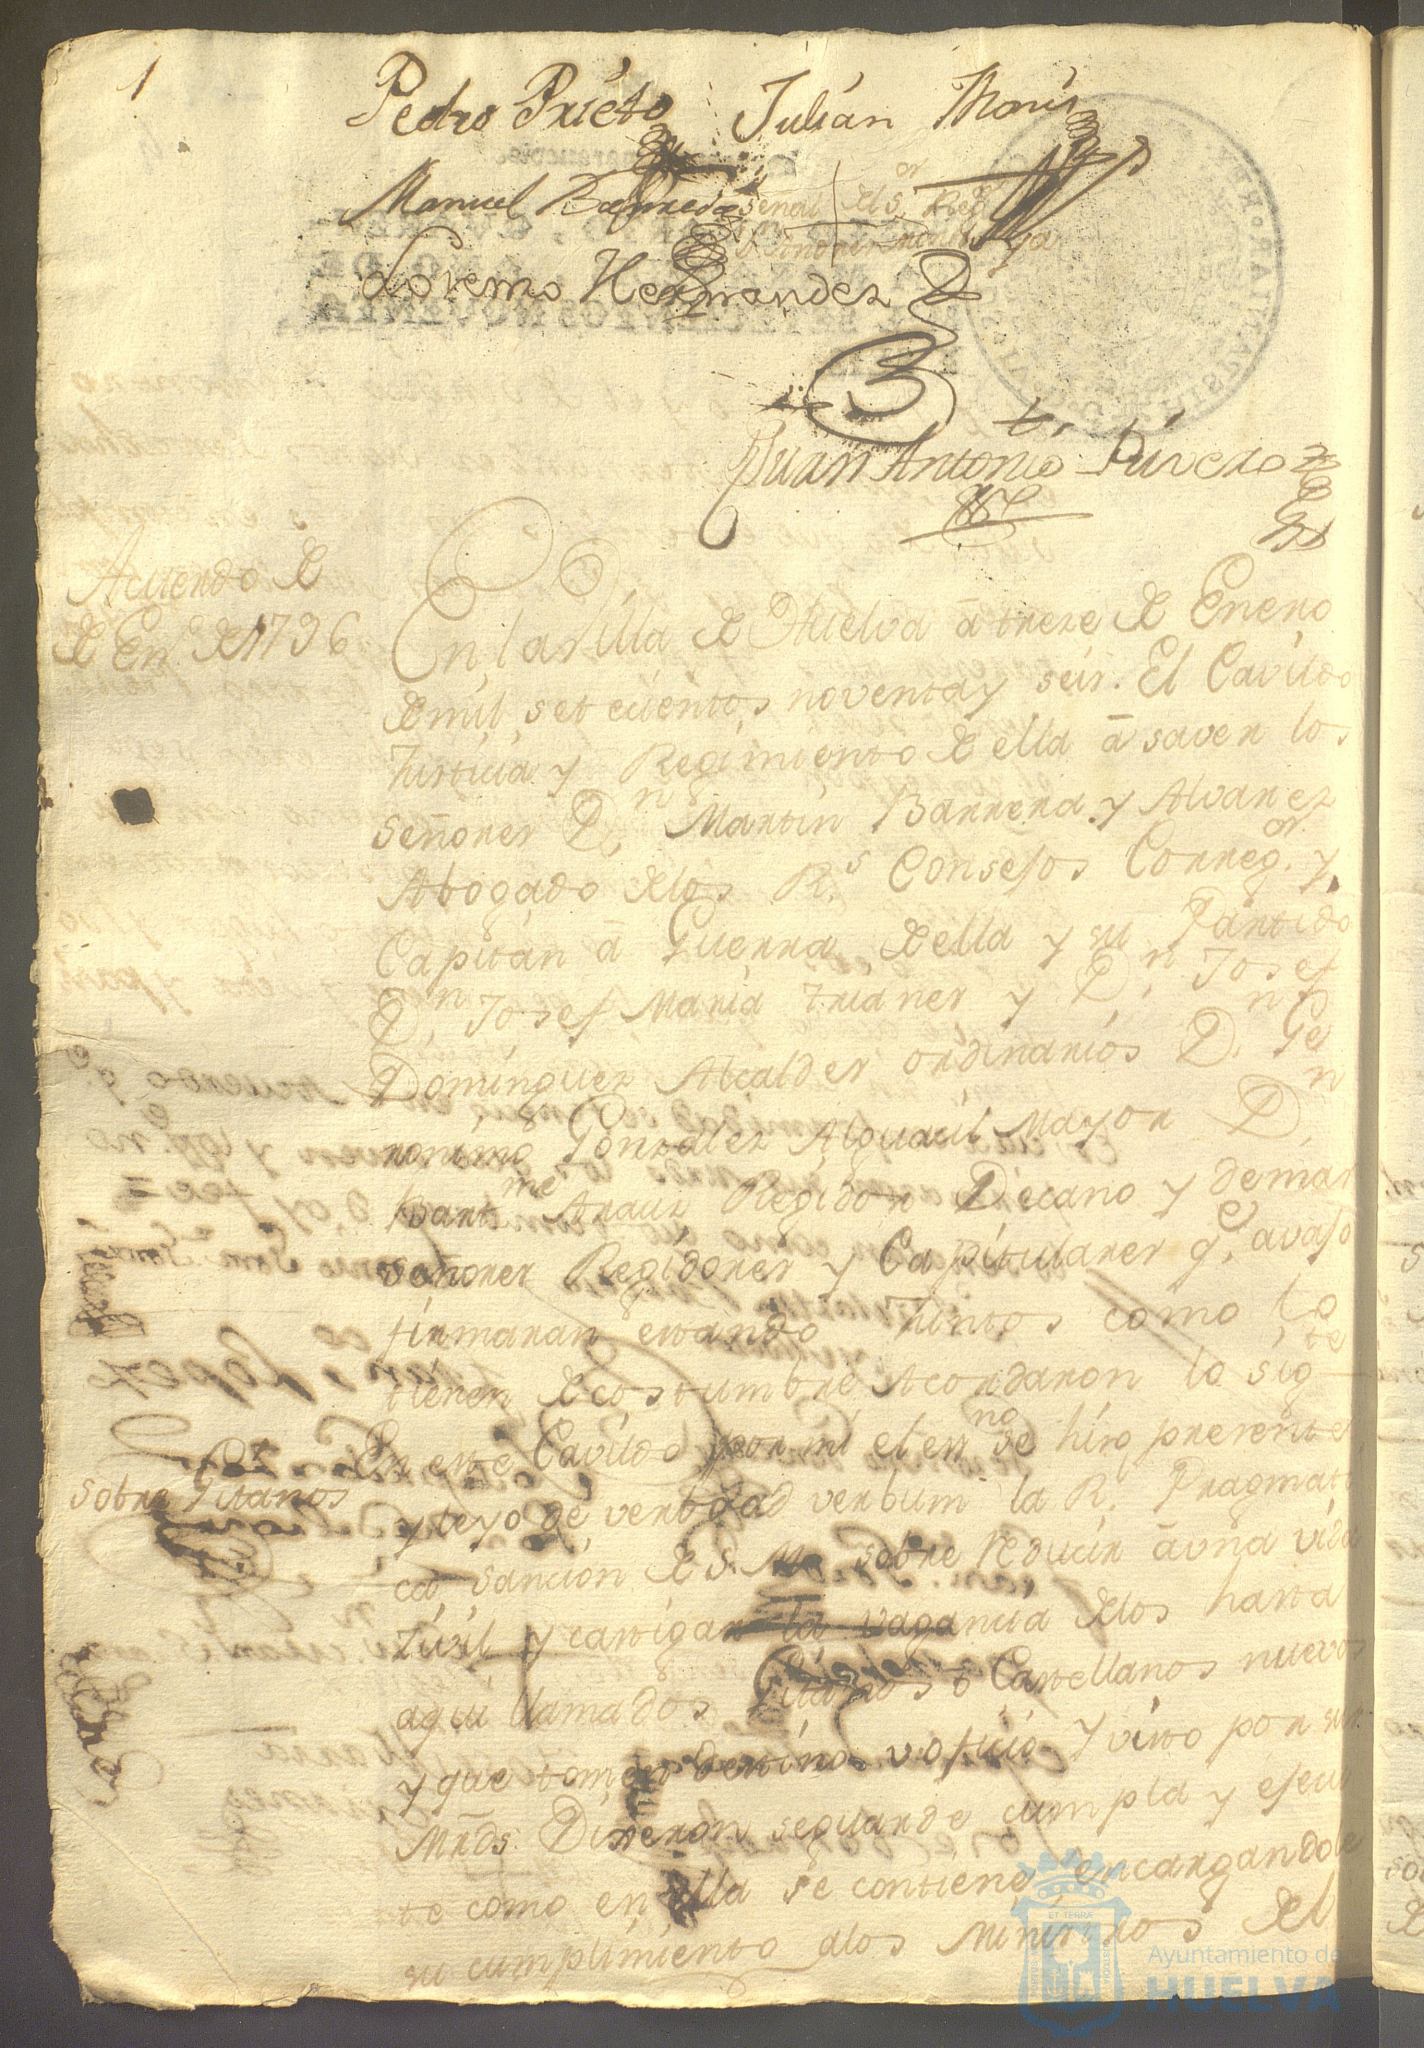 1
Pedro Prieto Julián
Manuel señal del Sr. Reg
Lorenzo Hernandez
Juan Antonio Rivero
Acuerdo de
de En.º de 1796
En la Villa de Huelva ā treze de Enero
de mil setecientos noventa y seis. El Cavildo
Justicia y Regimiento de ella ā saver los
señores D.n Martín Barrera y Alvarez
Abogado delos R.s Consejos Correg.or y
Capitán ā Guerra de ella y su Partido
D.n Josef María Trianes y D.n Josef
Domínguez Alcaldes ordinarios D.n Ge
ronimo Gonzalez Alguacil Mayor D.n
Bartme Arauz Regidor Decano y demas
señores Regidores y Capitulares q.e avajo
firmaran estando juntos como lo
tienen de costumbre Acordaron lo sigte
Sobre Jitanos
En este Cavildo por mi el essno se hizo presente
y leyo de verbo ad verbum la R. Pragmati
ca sanción de S. M. sobre reducir ā vña vida
zivil y castigar la vagancia delos hasta
aqui llamados Jitanos ō Castellanos nuevos
y que tomen destino v oficio y visto por sus
Mrds. Dixeron seguarde cumpla y ejecu
te como en ella se contiene encargandose
su cumplimiento alos Ministros del
Ayuntamiento de
HUELVA